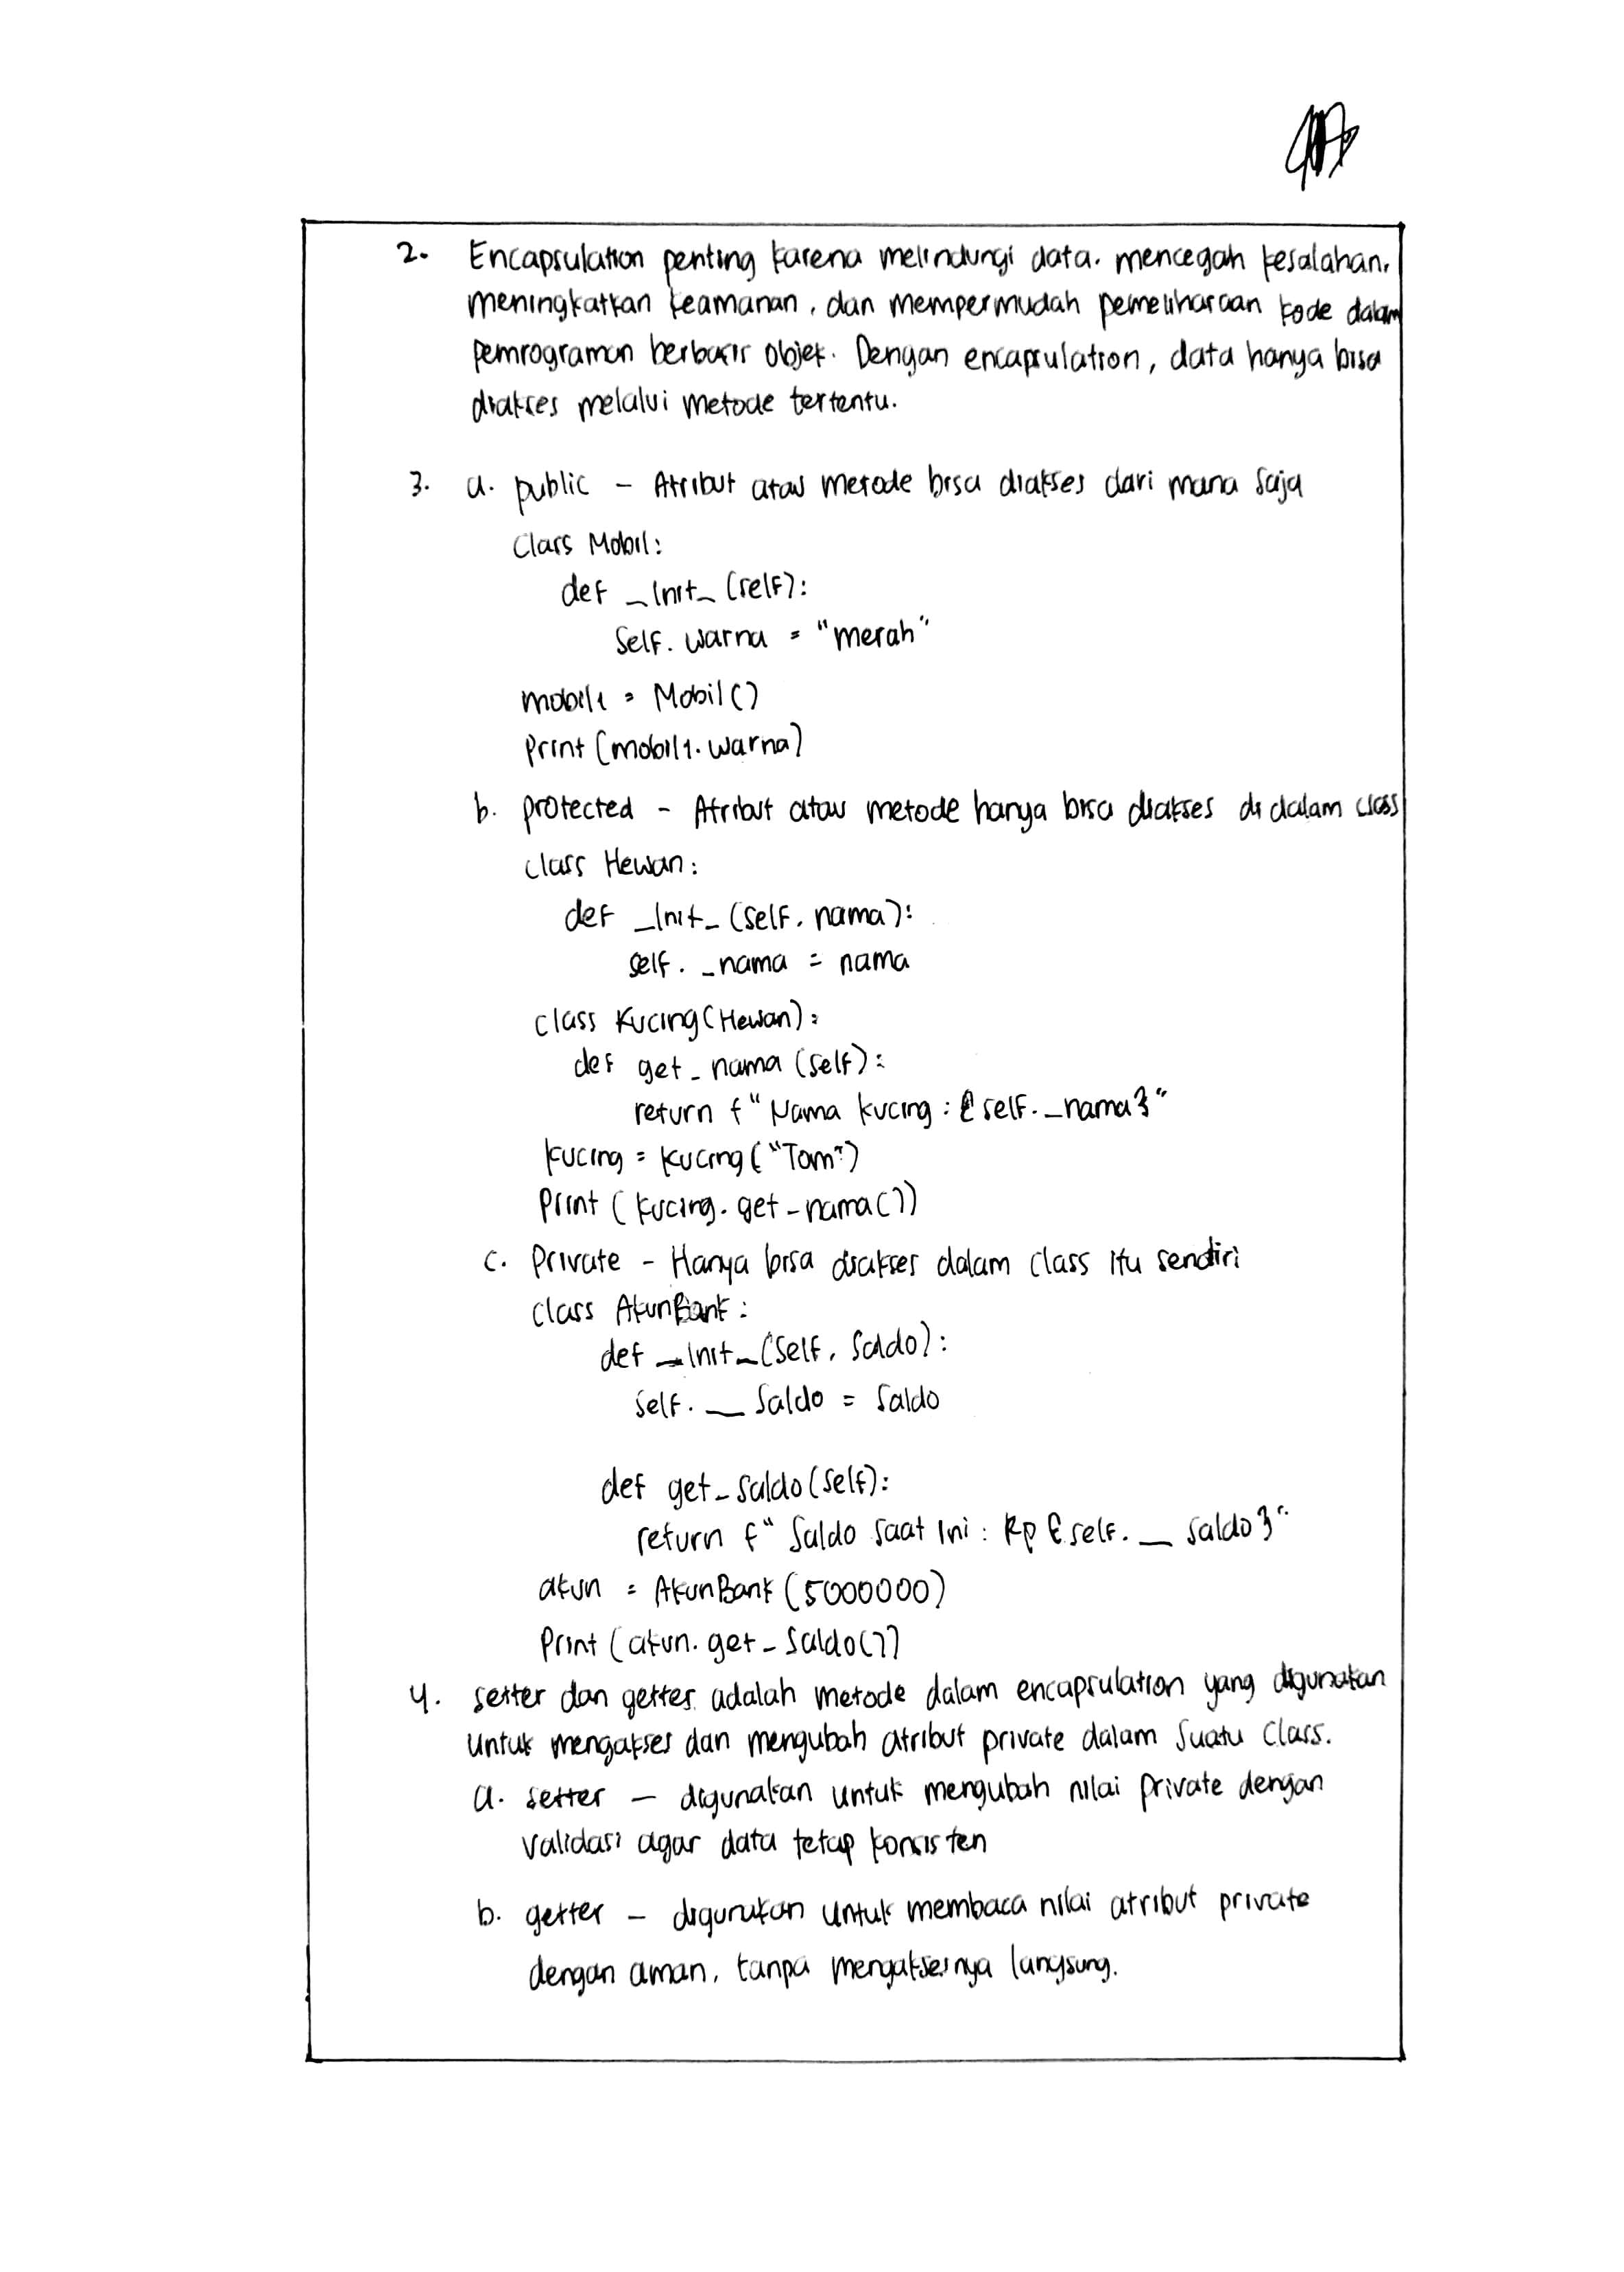 2. Encapsulation penting karena melindungi data. mencegah kesalahan,
meningkatkan keamanan, dan mempermudah pemeliharaan kode dalam
pemrograman berbasis objek. Dengan encapsulation, data hanya bisa
diakses melalui metode tertentu.
3. a. public - Atribut atau metode bisa diakses dari mana saja
Class Mobil:
def _Init_ (self):
Self. warna = "merah"
mobil1 = Mobil()
Print (mobil1. warna)
b. protected - Atribut atau metode hanya bisa diakses di dalam class
class Hewan:
def _Init_ (self, nama):
self. _nama = nama
class Kucing (Hewan):
def get_nama (self):
return f" Nama kucing : {self. _nama}"
kucing = kucing ("Tom")
Print ( kucing. get_nama())
c. Private - Hanya bisa diakses dalam class itu sendiri
class AkunBank:
def _Init_ (self, Saldo):
self. __ Saldo = Saldo
def get_saldo (self):
return f" Saldo saat Ini : Rp {self. __ saldo}"
akun = AkunBank (5000000)
Print (akun. get_Saldo())
4. setter dan getter adalah metode dalam encapsulation yang digunakan
untuk mengakses dan mengubah atribut private dalam Suatu Class.
a. setter - digunakan untuk mengubah nilai private dengan
validasi agar data tetap konsisten
b. getter - digunakan untuk membaca nilai atribut private
dengan aman, tanpa mengaksesnya langsung.